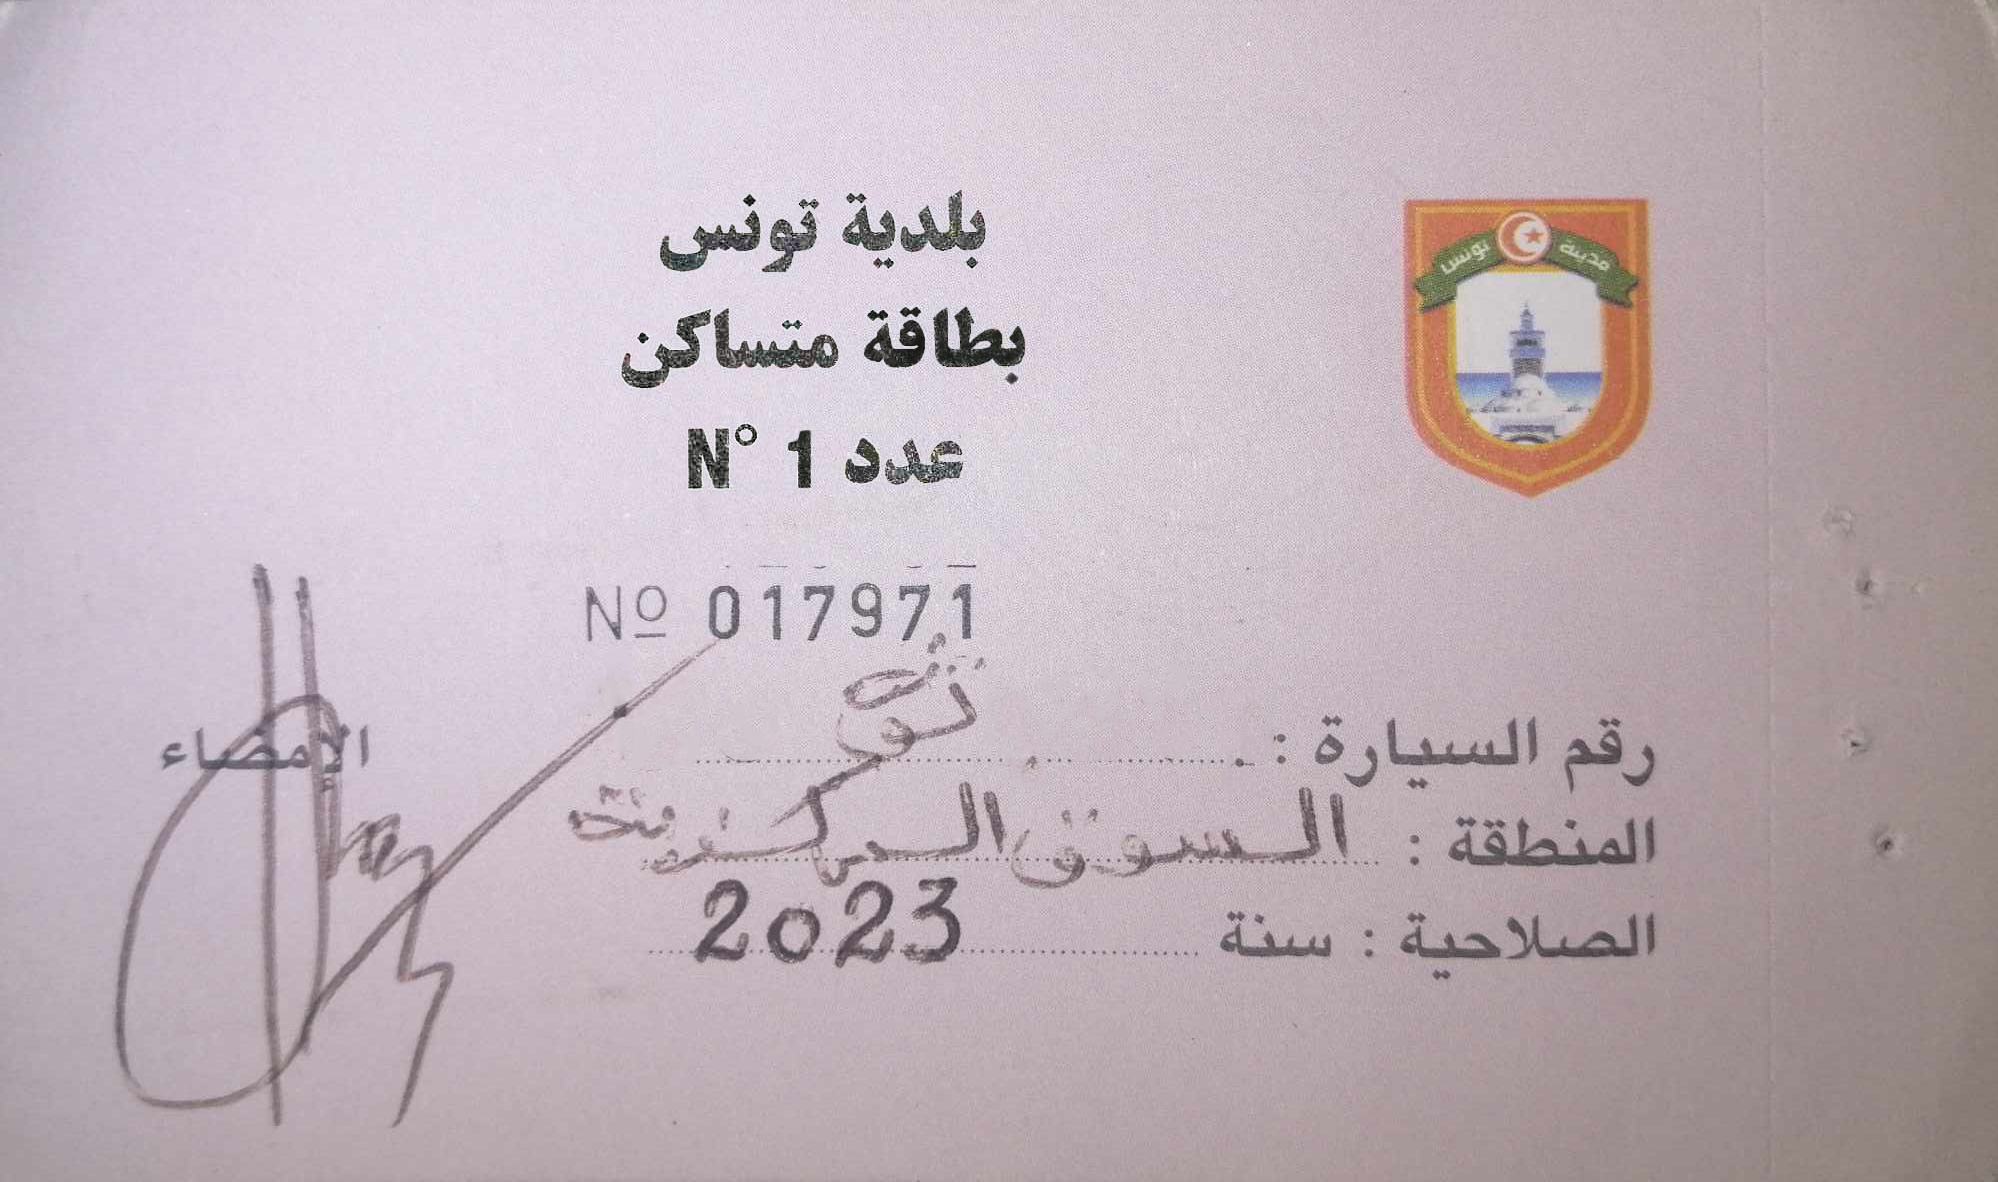 مدينة تونس
بلدية تونس
بطاقة متساكن
عدد 1 N°
No 017971
رقم السيارة :
الإمضاء
المنطقة : السوق المركزية
الصلاحية : سنة 2023